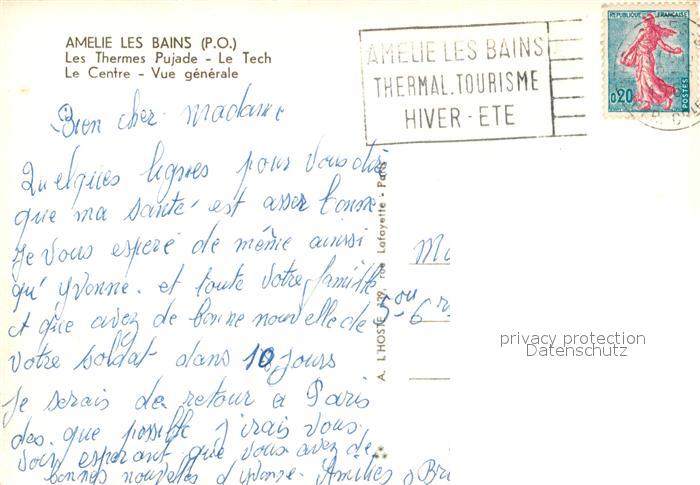 AMELIE LES BAINS (P.O.)
Les Thermes Pujade - Le Tech
Le Centre - Vue générale
AMELIE LES BAINS
THERMAL.TOURISME
HIVER - ETE
REPUBLIQUE FRANÇAISE
0,20
POSTES
Bien cher madame
Quelques lignes pour vous dire
que ma santé est asser bonne
Je vous esperé de même ainssi
qu'yvonne. et toute votre famille
et que avez de bonne nouvelle de
votre soldat dans 10 jours
Je serais de retour a Paris
des que possible j'irais vous
voir esperant que vous avez de
bonnes nouvelles d'yvonne. Amitiés
A. L'HOSTE 139, rue Lafayette - Paris
5 ou 6 r
privacy protection
Datenschutz